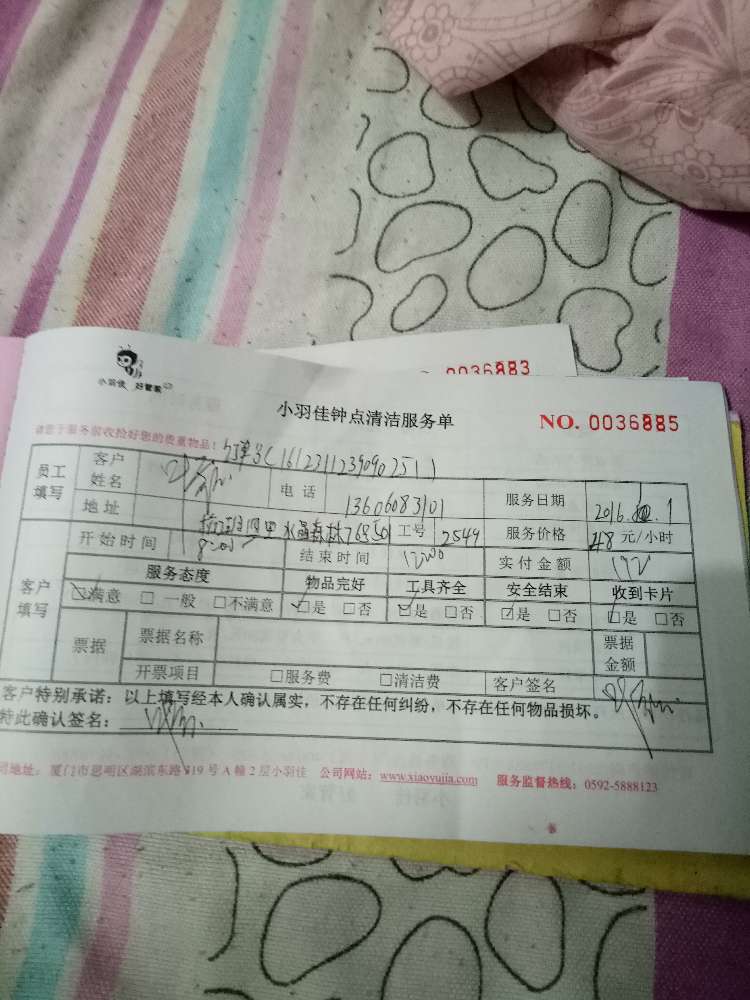 0036883
小羽佳 好管家
小羽佳钟点清洁服务单 NO. 0036885
请您于服务前收捡好您的贵重物品！
订单号(16123112390902511)
员工填写 客户姓名 电话 13606083101 服务日期 2016. .1
地址 水晶森林 工号 2549 服务价格 48 元/小时
客户填写 开始时间 8:00 结束时间 12:00 实付金额 192
服务态度 物品完好 工具齐全 安全结束 收到卡片
☑满意 □一般 □不满意 ☑是 □否 ☑是 □否 ☑是 □否 ☑是 □否
票据 票据名称 票据金额
开票项目 □服务费 □清洁费 客户签名
客户特别承诺：以上填写经本人确认属实，不存在任何纠纷，不存在任何物品损坏。
特此确认签名：
司地址：厦门市思明区湖滨东路319号A幢2层小羽佳 公司网站：www.xiaoyujia.com 服务监督热线：0592-5888123